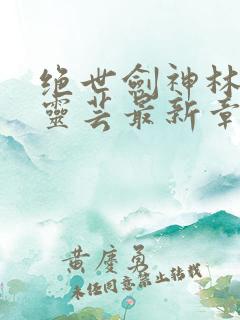 绝世剑神林
靈芸最新章
黄慶勇
未经同意禁止转载